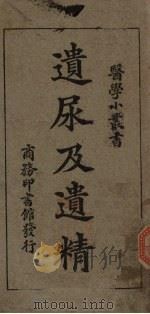 醫學小叢書
遺尿及遺精
商務印書館發行
www.mtoou.info